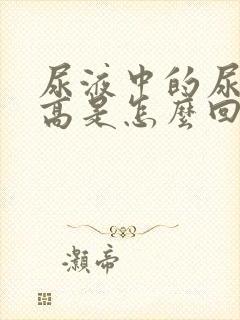 尿液中的尿
高是怎麼回
灝帝